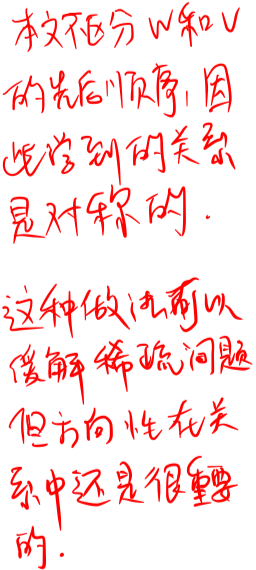 本文不区分W和V
的先后顺序,因
此学到的关系
是对称的.
这种做法可以
缓解稀疏问题
但方向性在关
系中还是很重要
的.